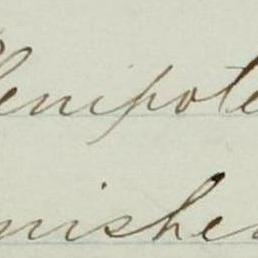 lenipote
nishe